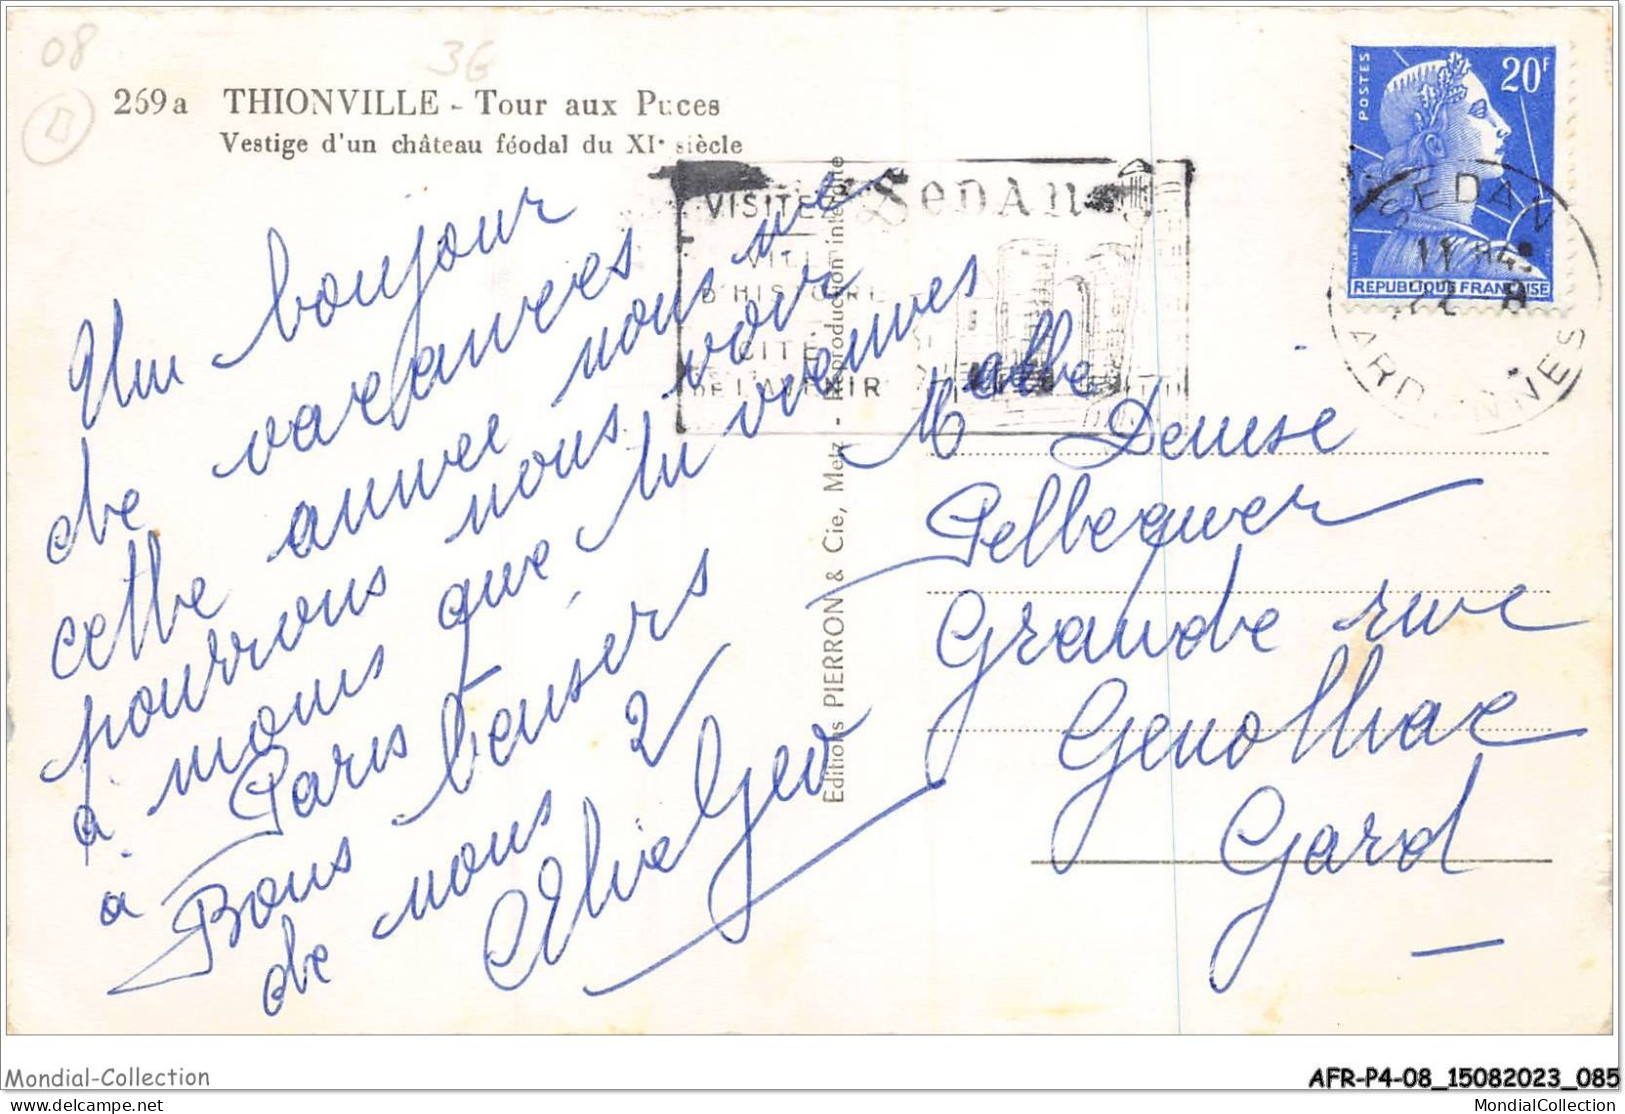 08
36
269a THIONVILLE - Tour aux Puces
Vestige d'un château féodal du XIe siècle
Un bonjour
de vacances
cette année nous ne
pourrons nous voir
à moins que tu viennes
à Paris
Bons baisers
de nous 2
Geo
Editions PIERRON & Cie, Metz - Reproduction interdite
VISITEZ SEDAN
VILLE
D'HISTOIRE
CITE
DE L'AVENIR
POSTES
20F
REPUBLIQUE FRANÇAISE
SEDAN
ARDENNES
Melle Denise
Pellequer
Grande rue
Genolhac
Gard
Mondial-Collection
AFR-P4-08_15082023_085
delcampe.net
MondialCollection